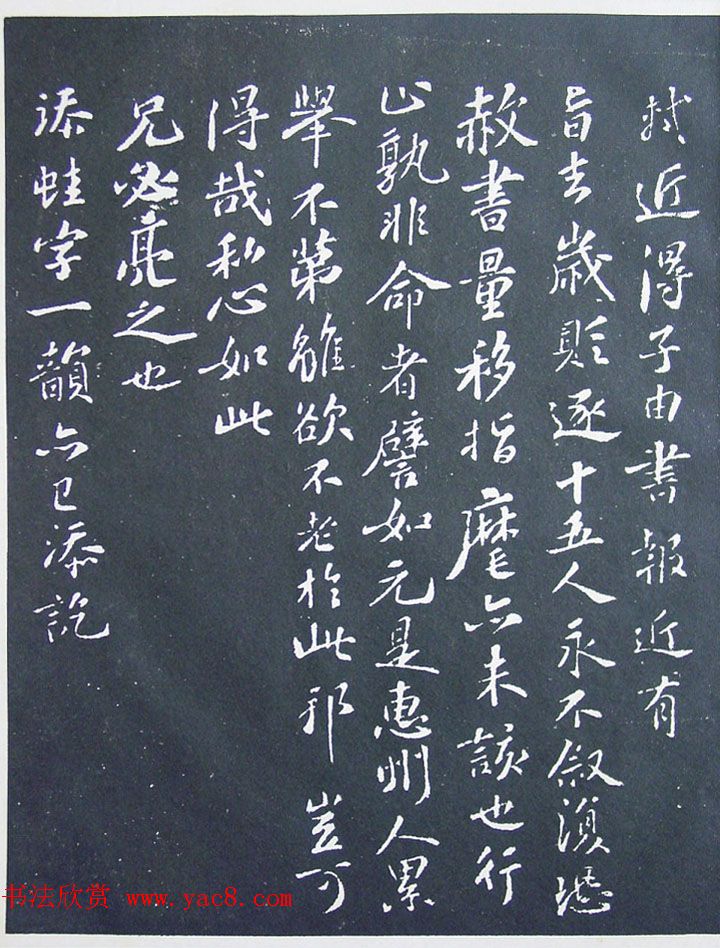 軾近得子由書報近有
旨去歲貶逐十五人永不叙湏恐
赦書量移指麾亦未該也行
止孰非命者譬如元是惠州人累
舉不第雖欲不老於此邪豈可
得哉私心如此
兄必亮之也
添蛙字一韻亦已添訖
书法欣赏 www.yac8.com